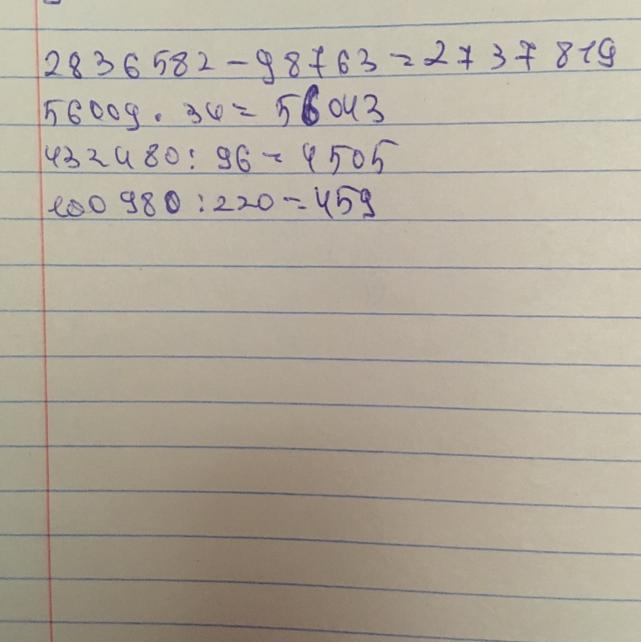 2836582-98763=2737819
56009.34=56043
432480:96=4505
100980:220=459